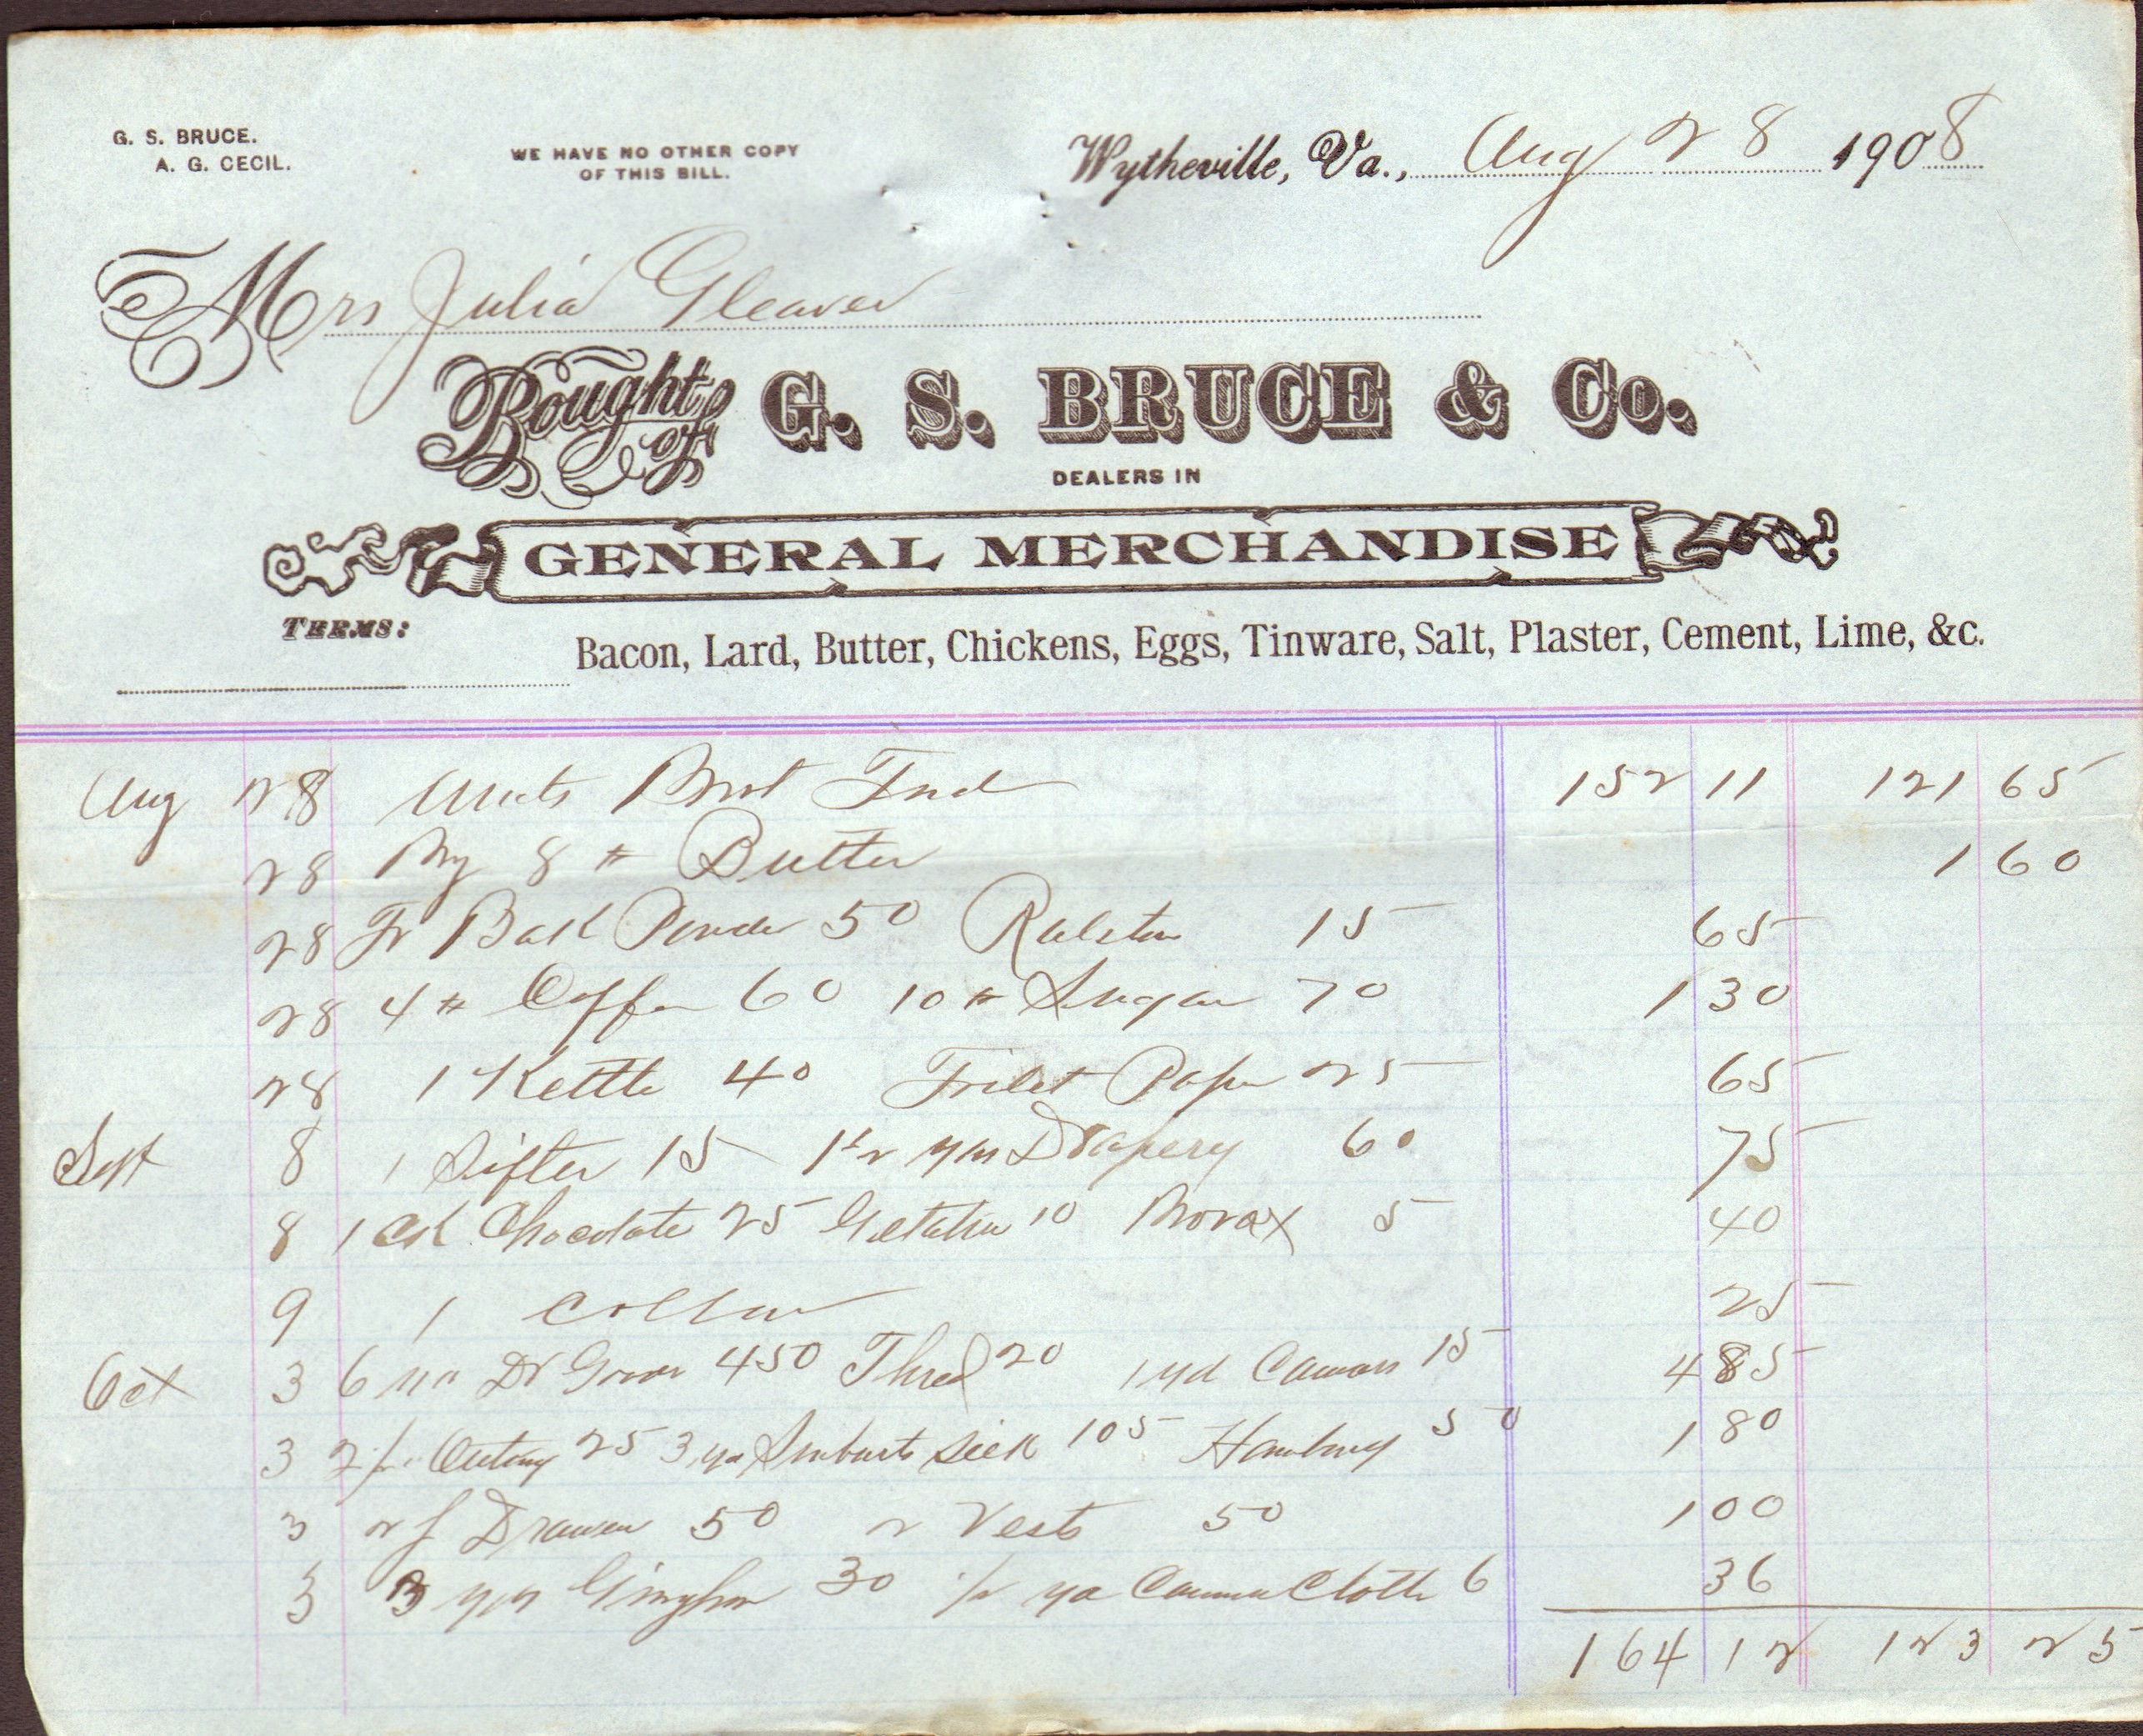 G. S. BRUCE.
A. G. CECIL.
WE HAVE NO OTHER COPY
OF THIS BILL.
Wytheville, Va., Aug 28 1908
Mrs Julia Gleaves
Bought of G. S. BRUCE & Co.
DEALERS IN
GENERAL MERCHANDISE
TERMS:
Bacon, Lard, Butter, Chickens, Eggs, Tinware, Salt, Plaster, Cement, Lime, &c.
Aug 28 Amts Brot Fwd 152 11 121 65
28 By 8 # Butter 1 60
28 To Bak Powder 50 Ralston 15 65
28 4 # Coffee 60 10 # Sugar 70 1 30
28 1 Kettle 40 Toilet Paper 25 65
Sept 8 1 Sifter 15 Drapery 60 75
8 1 Ck Chocolate 25 Gelatin 10 Borax 5 40
9 1 Collar 25
Oct 3 6 Dr Goods 450 Thred 20 1 yd Canvas 15 4 85
3 Outing 25 3 yd Silk 105 Hamburg 50 1 80
3 2 Drawers 50 2 Vests 50 1 00
3 3 yds Gingham 30 yd Cloth 6 36
164 12 123 25